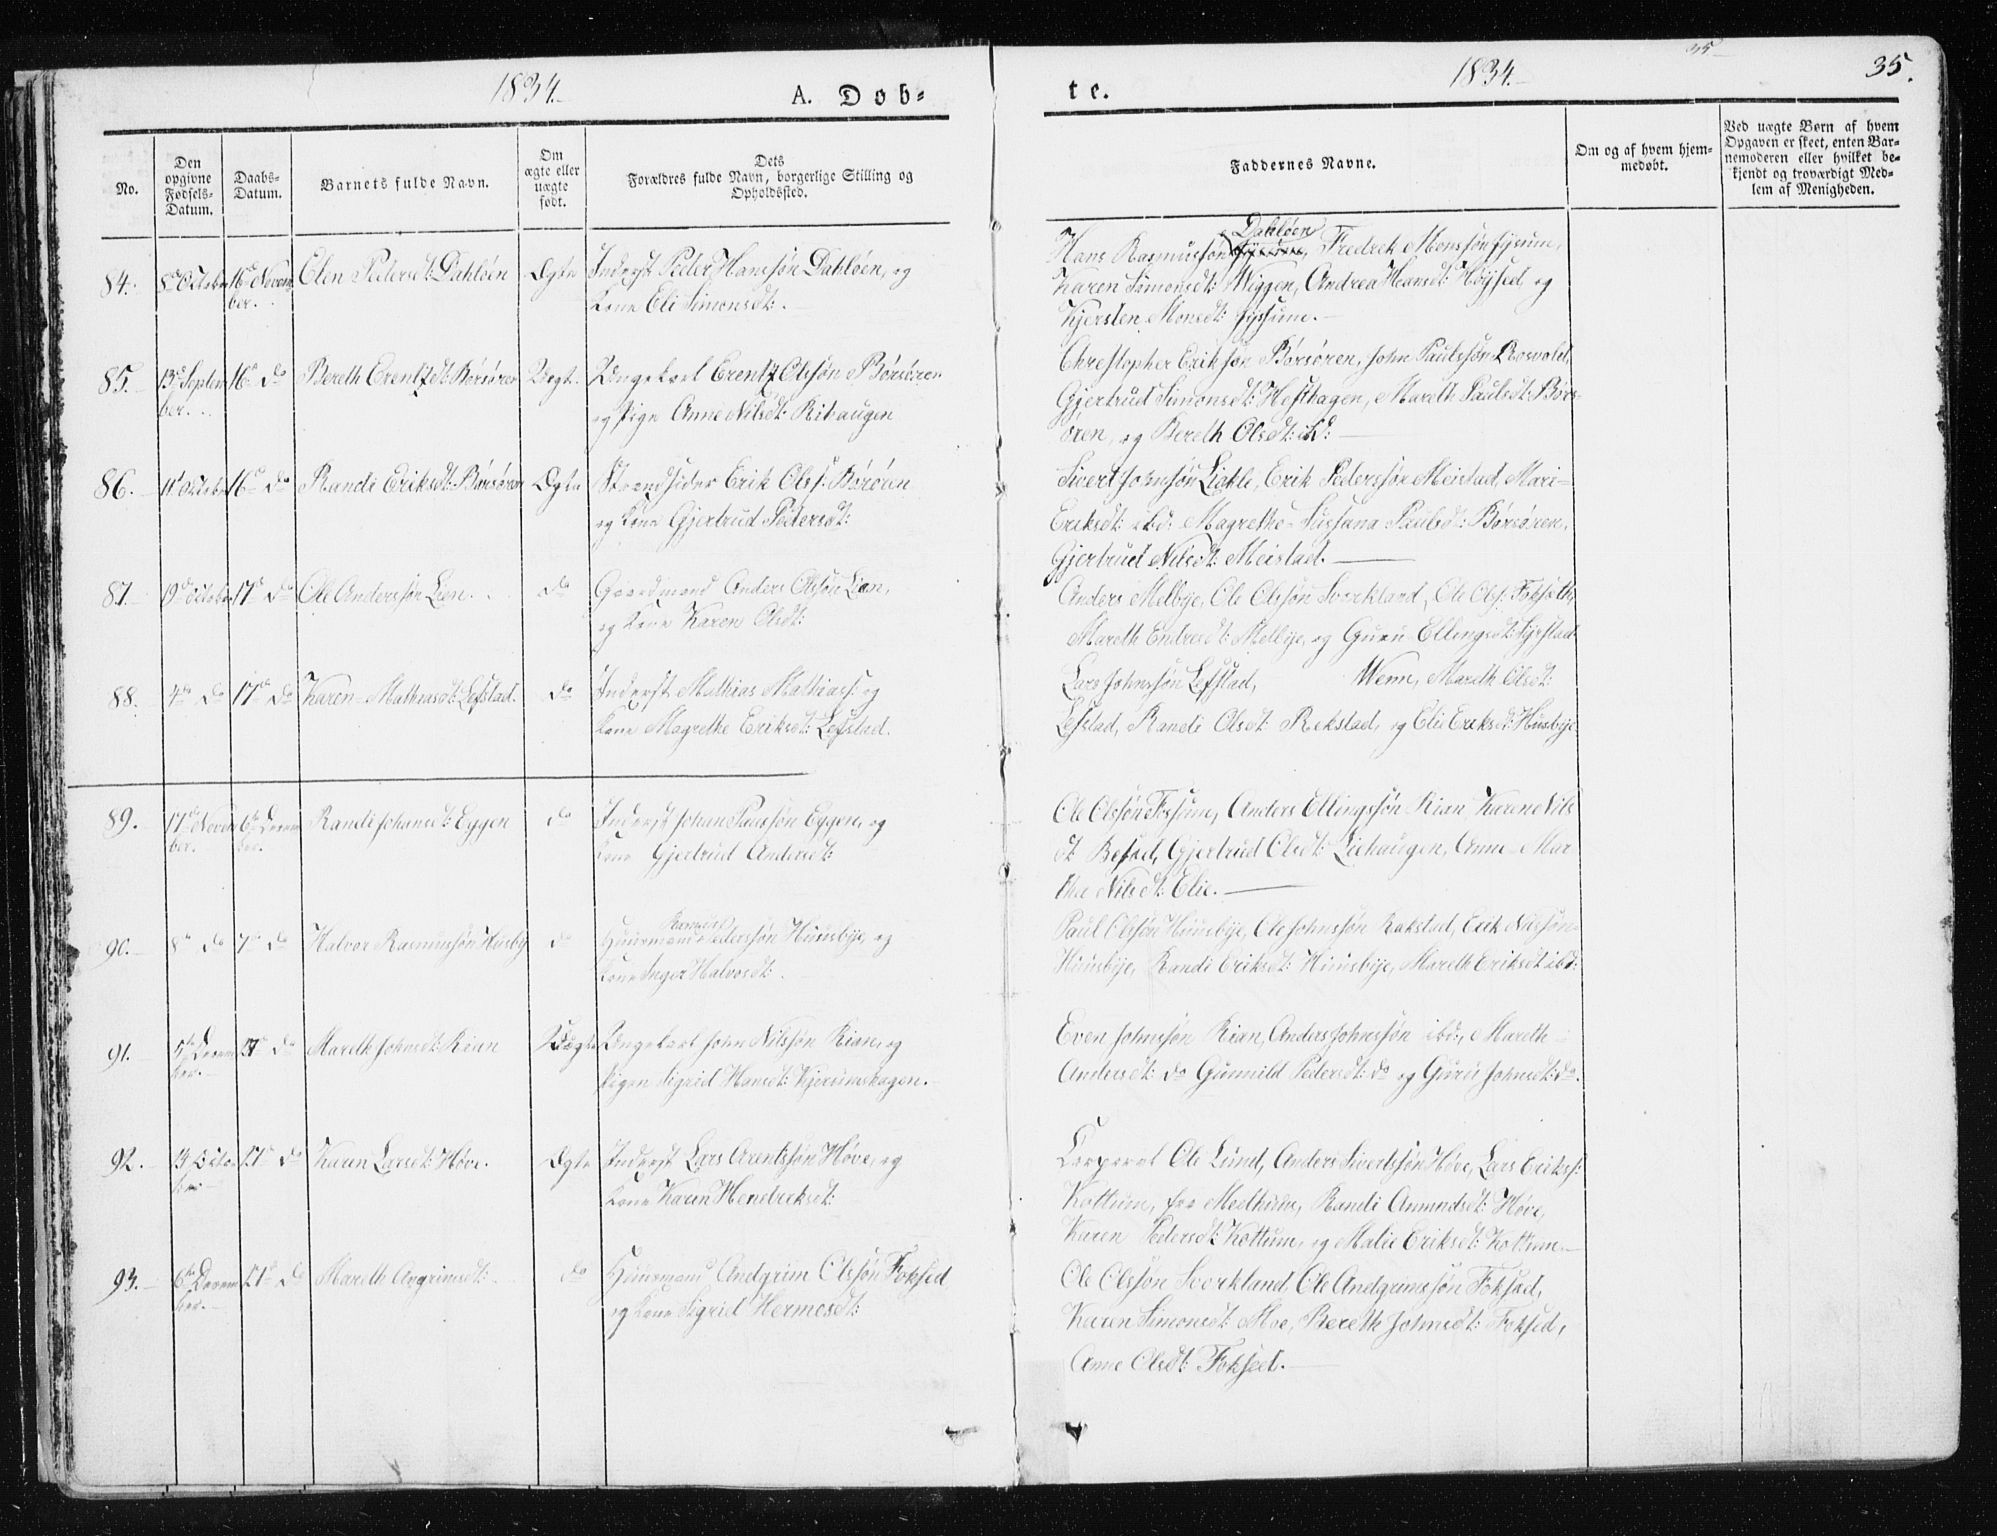 1834.
A. Døb-
te.
1834.
35
35.
No.
Den opgivne Fødsels-Datum.
Daabs-Datum.
Barnets fulde Navn.
Om ægte eller uægte født.
Dets
Forældres fulde Navn, borgerlige Stilling og
Opholdssted.
Faddernes Navne.
Om og af hvem hjem-
medøbt.
Ved uægte Børn af hvem
Opgaven er skeet, enten Bar-
nemoderen eller hvilket be-
kjendt og troværdigt Med-
lem af Menigheden.
84. 8de October 16de Novem Elen Pedersdt: Dahløen Ægte Inderst Peder Hanssøn Dahløen, og
ber.
Kone Eli Simonsdt:
Dahløen
Hans Rasmussøn Fredrek Monssøn Fysum,
Karen Simonsdt: Wiggen, Andrea Hansdt: Høysed og
Kjersten Monsdt: Fyssum.
85. 13de Septem 16de do Bereth Erentzdt: Børsøren Uægt. Ungekarl Erentz Olssøn Børsøren
ber.
og Pige Anne Nilsdt: Rihaugen
Christopher Erikssøn Børsøren, John Paulssøn Rosvold,
Gjertrud Simonsdt: Hefthagen, Mareth Paulsdt: Børs-
øren, og Bereth Olsdt: ibd:
86. 11te October 16de do Randi Eriksdt: Børsøren Ægte Strandsider Erik Olss: Børsøen
og Kone Gjertrud Pedersdt:
Sivert Johnsøn Lickle, Erik Pederssøn Meistad, Mari
Eriksdt: ibd: Magrethe Susana Paulsdt: Børsøren,
Gjertrud Nilsdt: Meistad.
87. 19de October 17de do Ole Anderssøn Lien. do Gaardmand Anders Olssøn Lian,
og Kone Karen Olsdt:
Anders Melbye, Ole Olssøn Sverkland, Ole Olss: Fokseth,
Mareth Endresdt: Melbye, og Guru Ellingsdt: Syrstad
88. 4de do 17de do Karen Mathiasdt: Lefstad. do Inderst Mathias Mathiass: og
Kone Magrethe Eriksdt: Lefstad.
Lars Johnssøn Lefstad, Wenn, Mareth Olsdt:
Lefstad, Randi Olsdt: Rekstad, og Elie Eriksdt: Husbye
89. 17de Novem 6te Decem Randi Johansdt: Eggen do Inderst Johan Paulssøn Eggen, og
ber. ber.
Kone Gjertrud Andersdt:
Ole Olssøn Fossum, Anders Ellingssøn Rian, Karen Nils
dt: Besed, Gjertrud Olsdt: Liehaugen, Anne Mar
tha Nilsdt: Elie.
90. 8de do 7de do Halvor Rasmussøn Husby do Huusmand Rasmus Pederssøn Huusbye, og
Kone Inger Halvosdt:
Paul Olssøn Huusbye, Ole Johnssøn Rakstad, Erik Nilssøn
Huusbye, Randi Eriksdt: Huusbye, Mareth Eriksdt: ibd:
91. 5te Decem do Mareth Johnsdt: Rian Uægte Ungekarl John Nilssøn Rian, og
ber.
Pigen Sigrid Hansdt: Kjerumshagen.
Even Johnssøn Rian, Anders Johnssøn ibd:, Mareth
Andersdt: do Gunnild Pedersdt: do og Guru Johnsdt: do.
92. Octo do Karen Larsdt: Høve. Ægte Inderst Lars Arentssøn Høve, og
ber
Kone Karen Hendreksdt:
Corporal Ole Lund, Anders Sivertssøn Høve, Lars Erikss:
Kottum, fra Meelhuus, Randi Amundsdt: Høve,
Karen Pedersdt: Kottum, og Malie Eriksdt: Kottum.
93. 6te Decem do Mareth Angrimsdt: do Huusmand Andgrim Olssøn Foksed
ber.
og Kone Sigrid Hermosdt:
Ole Olssøn Sverkland, Ole Andgrimssøn Foksed,
Karen Simonsdt: Moe, Bereth Johnsdt: Foksed,
Anne Olsdt: Foksed.